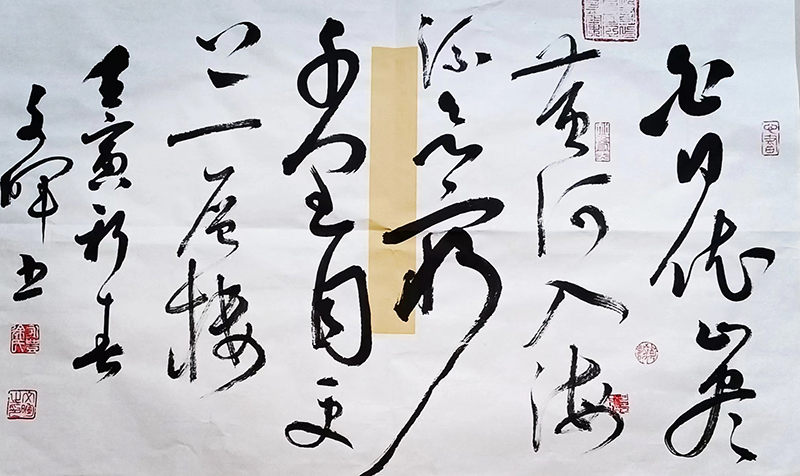 白日依山尽
黄河入海
流欲穷
千里目更
上一层楼
壬寅新春
文晖书